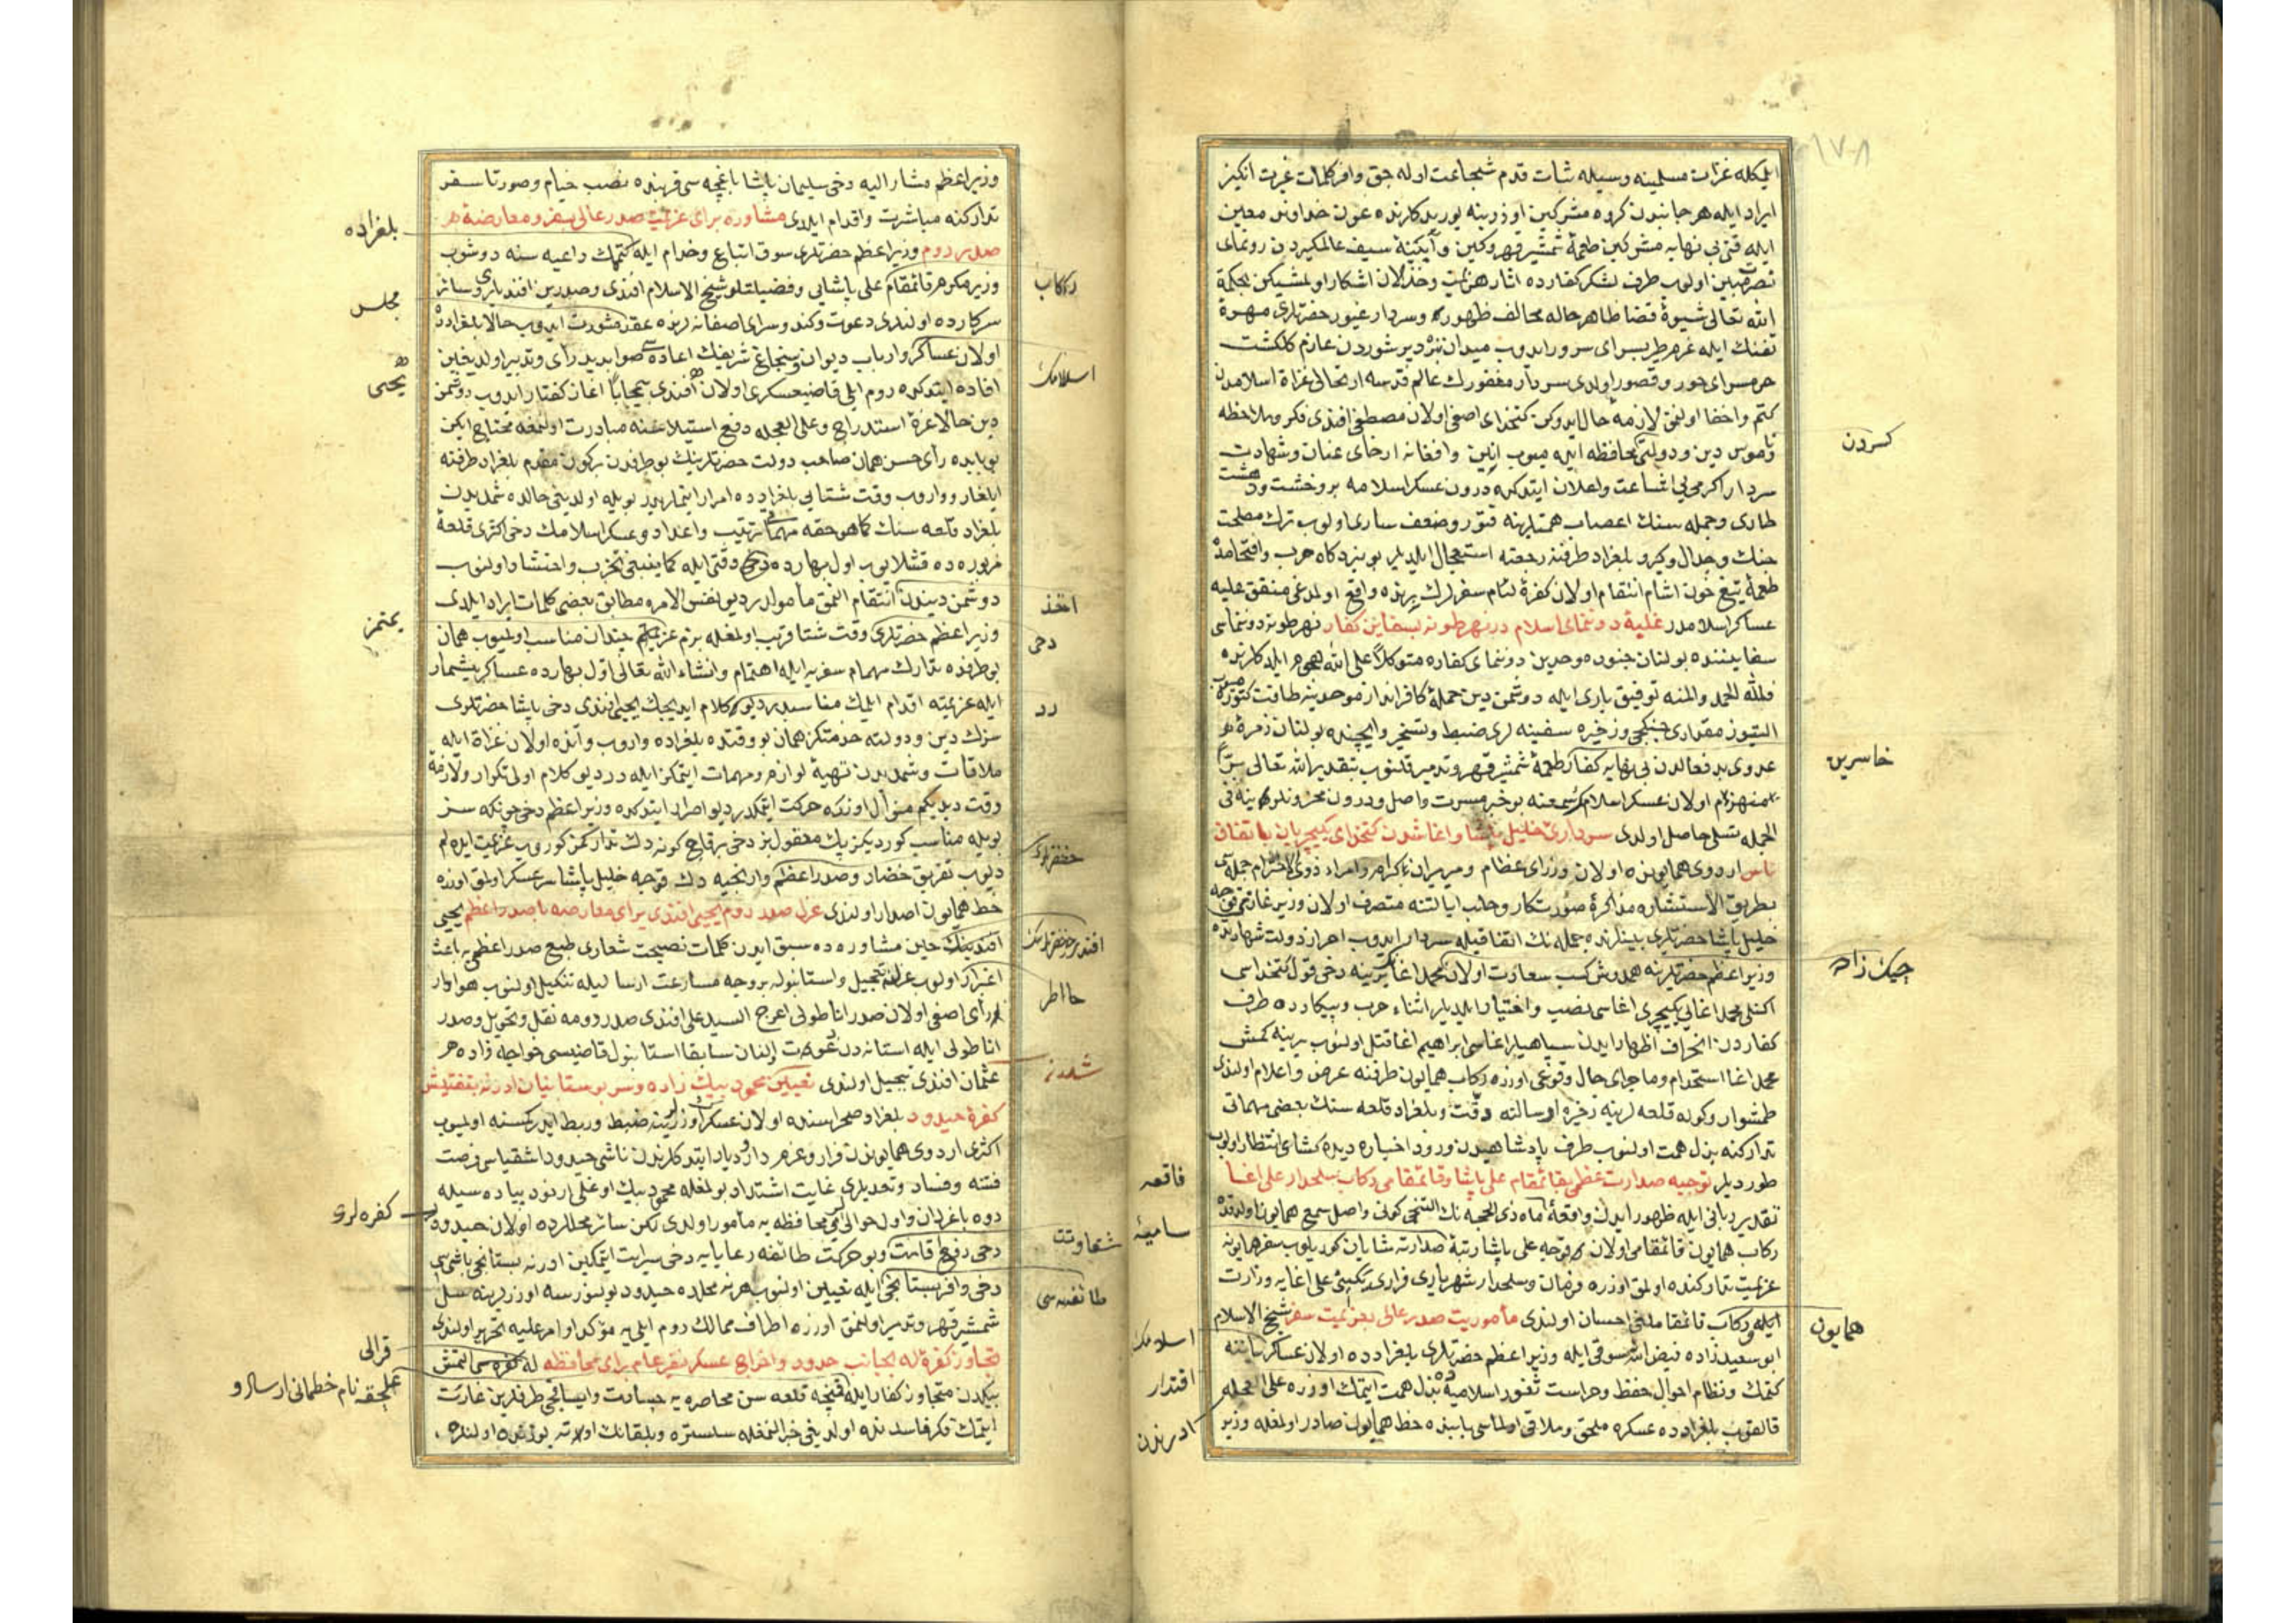 ايليكله غزات مسلمينه وسيله ثبات قدم شجاعت اوله جق وافر كلمات غيرت انكيز
ايراد ايله هر جانبدن كروه مشركين اوزرينه يوريدكلرنده عون خداوند معين
ايله قتى بى نهايه مشركين طعمهٔ شمشير قهر وكين وآيينهٔ سيف عالمكيردن رونماى
نصرت مبين اولوب طرف لشكر كفارده اثار هزيمت وخذلان اشكار اولمشيكن بحكمة
الله تعالى شيوهٔ قضا ظاهر حاله مخالف ظهور وسردار غيور حضرتلرى مهرهٔ
تفنك ايله عزم طربسراى سرور ايدوب ميدان نبرد پر شوردن عازم كلكشت
حرمسراى حور وقصور اولدى سردار مغفورك عالم قدسه ارتحالى غزاة اسلامدن
كتم واخفا اولنمق لازمهٔ حال ايدوكن كتخداى اصفى اولان مصطفى افندى فكر وملاحظه
ناموس دين ودولتى محافظه ايده ميوب انين وافغانه ارخاى عنان وشهادت
سردار اكرمى اشاعت واعلان ايتدكده درون عسكر اسلامه بر وحشت ودهشت
طارى وجمله سنك اعصاب همتلرينه فتور وضعف سارى اولوب ترك مصلحت
جنك وجدال وكيرو بلغراد طرفنه رجعته استعجال ايلديلر بو بزدكاه حرب واقتحامده
طعمهٔ تيغ خون اشام انتقام اولان كفرهٔ لئام سفرلرك برنده واقع اولمدغى متفق عليه
عساكر اسلامدر غلبهٔ دونماى اسلام در نهر طونه بسفاين كفار نهر طونه دونماسى
سفايننده بولنان جنود موحدين دونماى كفاره متوكلاً على الله هجوم ايلدكلرنده
فلله الحمد والمنه توفيق بارى ايله دوشمن دين حملهٔ كافر انداز موحدينه طاقت كتورميوب
التيوز مقدارى جنكجى وذخيره سفينه لرى ضبط وتسخير وايچنده بولنان زمرهٔ
عدوى بدفعالدن بى نهايه كفار طعمهٔ شمشير قهر وتدمير قلنوب بتقدير الله تعالى
منهزم اولان عسكر اسلامك سمعنه بو خبر مسرت واصل ودرون محزونلرينه فى
الجمله تسلى حاصل اولدى سردارئ خليل پاشا واغا شدن كتخداى يكيچريان باتفاق
ناس اردوى همايونده اولان وزراى عظام وميرميران كرام وامراء ذوى الاحترام جمله سى
بطريق الاستشاره مذاكرهٔ صورتكار وحانب ايالتنه متصرف اولان وزير غازى قوجه
خليل پاشا حضرتلرى بينلرنده جمله نك اتفاقيله سردار ايدوب احراز دولت شهادتده
وزير اعظم حضرتلرينه همدوش كسب سعادت اولان محمد اغا يرينه دخى قول كتخداسى
اكنلى محمد اغايى يكيچرى اغاسى نصب واختيار ايلديلر اثناء حرب وپيكارده طرف
كفاردن انحراف اظهار ايدن سپاهيلر اغاسى ابراهيم اغا قتل اولنوب يرينه كمش
محمد اغا استخدام وماجراى حال وقوعى اوزره ركاب همايون طرفنه عرض واعلام اولندى
طمشوار وكوله قلعه لرينه ذخيره ارسالنه دقت وبلغراد قلعه سنك بعضى مهماتى
تداركنه بذل همت اولنوب طرف پادشاهيدن ورود اخباره ديده كشاى انتظار اولوب
طورديلر توجيه صدارت عظمى بقائمقام على پاشا وقائمقامى ركاب سلحدار على اغا
تقدير ربانى ايله ظهور ايدن واقعهٔ ماه ذى الحجه نك التنجى كونى واصل سمع همايون اولدقده
ركاب همايون قائمقامى اولان قوجه على پاشا رتبهٔ صدارته شايان كوريلوب سفر همايونه
عزيمت تداركنده اولمق اوزره فرمان وسلحدار شهريارى على اغايه وزارت
ايله ركاب قائمقاملغى احسان اولندى مأموريت صدر عالى بعزيمت سفر شيخ الاسلام
ابو سعيد زاده فيض الله سوقى ايله وزير اعظم حضرتلرى بلغرادده اولان عساكر ياننه
كتمك ونظام احوال حفظ وحراست ثغور اسلاميه ده بذل همت ايتمك اوزره على العجله
قالقوب بلغرادده عسكره ملحق وملاقى اولماسى بابنده خط همايون صادر اولمغله وزير
كسردن
خاسرين
چيك زاده
همايون
فاقعه
ساميهٔ
اسلامك
اقتدار
ادرنه دن
وزير اعظم مشار اليه دخى سليمان پاشا باغچه سى قربنده نصب خيام وصورتا سفر
تداركنه مباشرت واقدام ايلدى مشاوره براى عزيمت صدر عالى بسفر ومعارضهٔ
صدر روم وزير اعظم حضرتلرى سوق اتباع وخدام ايله كتمك داعيه سنه دوشوب
وزير مكرم قائمقام على پاشايى وفضيلتلو شيخ الاسلام افندى وصدرين افنديلرى وسائر
سركارده اولنلرى دعوت وكند وسراى اصفانه لرنده عقد مشورت ايدوب حالا بلغرادده
اولان عساكر وارباب ديوان وسنجاغ شريفك اعاده سى صوابديد رأى وتدبير اولديغين
افاده ايتدكده روم ايلى قاضيعسكرى اولان افندى بيحابا اغاز كفتار ايدوب دوشمن
دين حالا غرهٔ استدراج وعلى العجله دفع استيلاسنه مبادرت اولنمغه محتاج ايكن
بو بابده رأى حسن همان صاحب دولت حضرتلرينك بو طرفدن بر كون مقدم بلغراد طرفنه
ايلغار وواروب وقت شتايى بلغرادده امرار ايتملريدر بويله اولديغى حالده شمديدن
بلغراد قلعه سنك كما هو حقه مهماتى ترتيب واعداد وعسكر اسلامك دخى اكثرى قلعهٔ
مزبوره ده قشلايوب اول بهارده دخى وقتى ايله كما ينبغى تحزب واحتشاد اولنوب
دوشمن ديندن انتقام المق مأمولدر ديو نفس الامره مطابق بعضى كلمات ايراد ايلدى
وزير اعظم حضرتلرى وقت شتا قريب اولمغله بزم عزيمتم چندان مناسب اولميوب همان
بو طرفده تدارك مهمام سفريه ايله اهتمام وانشاء الله تعالى اول بهارده عساكر بيشمار
ايله عزيمته اقدام ايلمك مناسبدر ديو كلام ايديجك يحيى افندى دخى پاشا حضرتلرى
سزك دين ودولته خدمتكز همان بو وقتده بلغراده واروب وآنده اولان غزاة ايله
ملاقات وشمديدن تهيهٔ لوازم ومهمات ايتمكز ايله در ديو كلام اولى تكرار ولازمهٔ
وقت ديديكم منوال اوزره حركت ايتمكدر ديو اصرار ايتدكده وزير اعظم دخى چونكه سز
بويله مناسب كورديكز پك معقول بز دخى بر قاچ كونه دك تداركمز كوروب عزيمت ايده لم
ديوب تفريق حضار وصدر اعظم وارنجيه دك قوجه خليل پاشا سرعسكر اولمق اوزره
خط همايون اصدار اولندى عزل صدر روم يحيى افندى براى معارضه با صدر اعظم يحيى
افندينك حين مشاوره ده سبق ايدن كلمات نصيحت شعارى طبع صدر اعظمى يه باعث
اغبرار اولوب عزلنه تعجيل واستانبوله بر وجه مسارعت ارساليله تنكيل اولنوب هوادار
رأى اصفى اولان صدر اناطولى اعرج السيد على افندى صدر رومه نقل وتحويل وصدر
اناطولى ايله استانه دن دعوت النان سابقا استانبول قاضيسى خواجه زاده
عثمان افندى تبجيل اولندى تعيين محمود بيك زاده وسر بوستانيان ادرنه بتفتيش
كفرهٔ حيدود بلغراد صحراسنده اولان عسكر اوزرينه ضبط وربط ايدر كمسنه اولميوب
اكثرى اردوى همايوندن فرار وعزم دار وديار ايتدكلرندن ناشى حيدود اشقياسى فرصت
فتنه وفساد وتعديلرى غايت اشتداد بولمغله محمود بيك اوغلى ارنود پياده سيله
دوه باغردان واول حوالى محافظه يه مأمور اولدى لكن سائر محللرده اولان حيدود
دخى رفع قامت وبو حركت طائفه رعايايه دخى سرايت ايتمكين ادرنه بستانجى باشيسى
دخى وافر بستانجى ايله تعيين اولنوب هر نه محلده حيدود بولنورسه اوزرلرينه سل
شمشير قهر وتدمير اولنمق اوزره اطراف ممالك روم ايلى يه مؤكد اوامر عليه تحرير اولندى
تجاوز كفرهٔ له بجانب حدود واخراج عسكر نفير عام براى محافظه له كفره سى التمش
بيكدن متجاوز كفار ايله قنيجه قلعه سن محاصره يه جسارت وايساقجى طرفلرين غارت
ايتمك فكر فاسدنده اولديغى خبر النمغله سلستره وبلقانك اوته يوزنده اولنلره
بلغراده
مجلس
يحيى
يمتمز
كفره لرى
قرالى
علجقه نام خطمانى ارسال و
ركاب
اسلامك
اخذ
دخى
رد
حضرتلرى
افندى حضرتلرينك
خاطر
شدنه
شقاوتت
طائفه سى